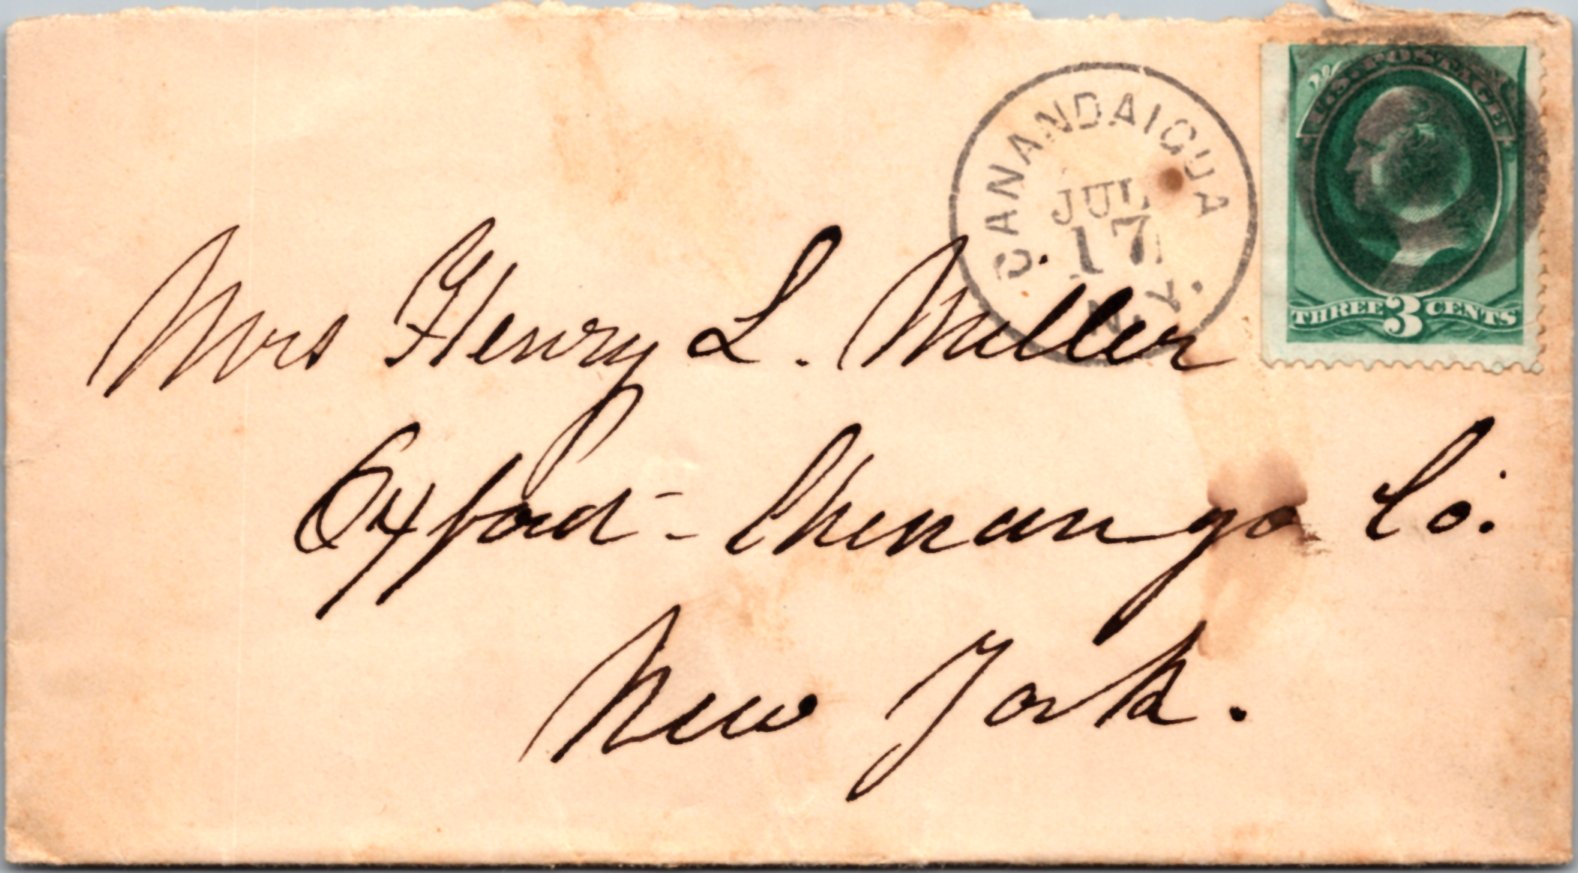 CANANDAIGUA
JUL
17
N.Y.
U.S. POSTAGE
THREE 3 CENTS
Mrs Henry L. Miller
Oxford - Chenango Co.
New York.